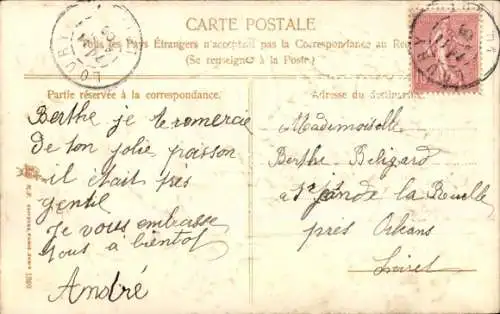 CARTE POSTALE
Tous les Pays Étrangers n'acceptent pas la Correspondance au
(Se renseigner à la Poste.)
Partie réservée à la correspondance.
Adresse du destinataire.
Berthe je te remercie
de ton jolie poisson
il était très
gentil
Je vous embrasse
tous a bientot
André
Mademoiselle
Berthe Beligard
a St jean de la Ruelle
près Orléans
Loiret